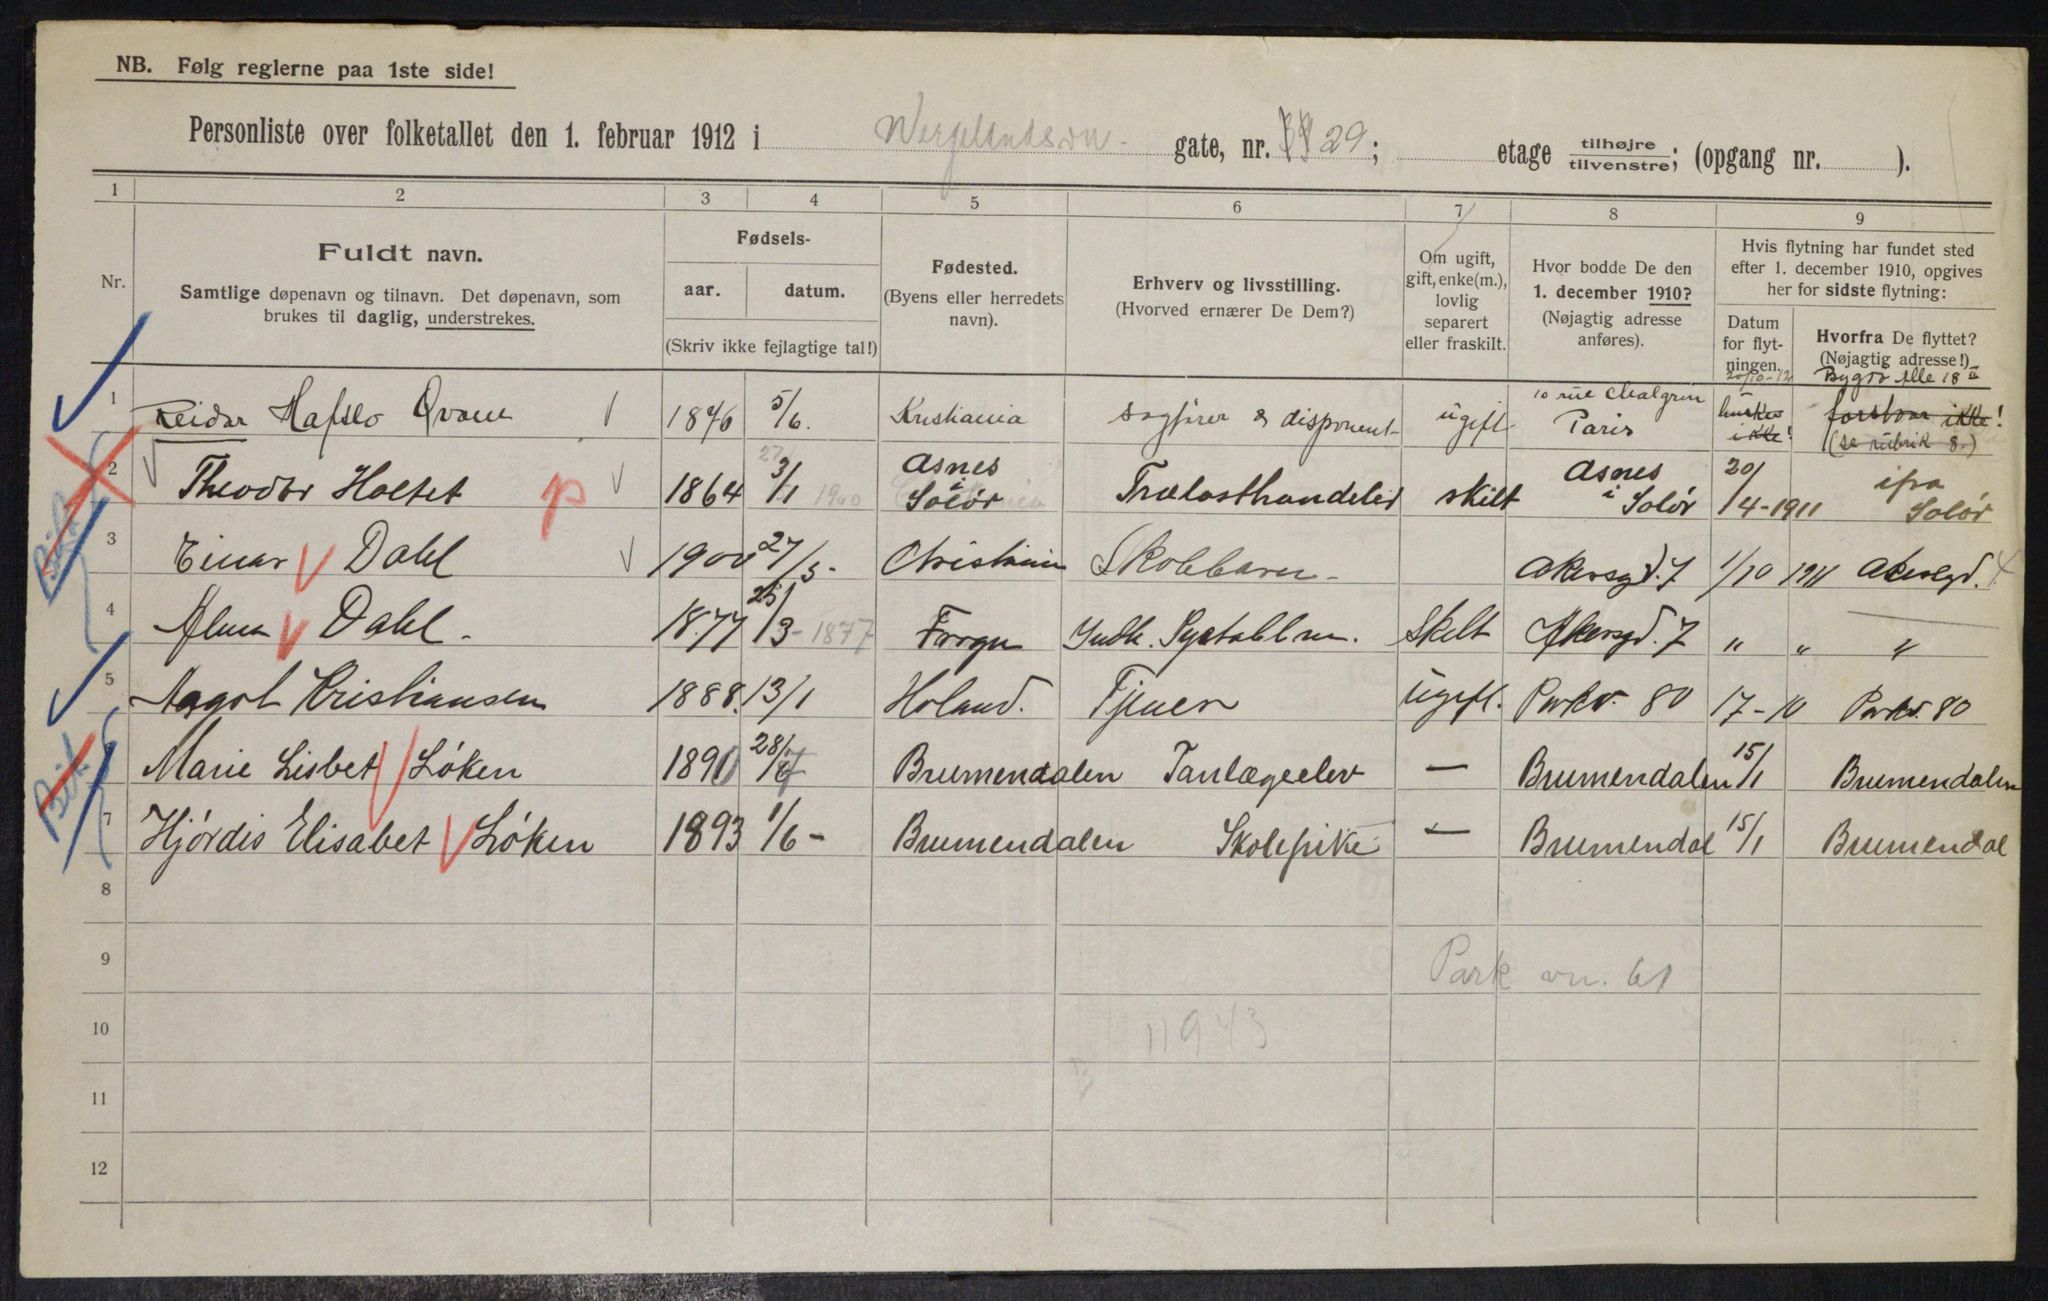 NB. Følg reglerne paa 1ste side!
Personliste over folketallet den 1. februar 1912 i Wergelandsvn. gate, nr. 29; etage tilhøjre tilvenstre; (opgang nr. ).
1 2 3 4 5 6 7 8 9
Nr.
Fuldt navn.
Samtlige døpenavn og tilnavn. Det døpenavn, som
brukes til daglig, understrekes.
Fødsels-
aar. datum.
(Skriv ikke fejlagtige tal!)
Fødested.
(Byens eller herredets
navn).
Erhverv og livsstilling.
(Hvorved ernærer De Dem?)
Om ugift,
gift, enke(m.),
lovlig
separert
eller fraskilt.
Hvor bodde De den
1. december 1910?
(Nøjagtig adresse
anføres).
Hvis flytning har fundet sted
efter 1. december 1910, opgives
her for sidste flytning:
Datum
for flyt-
ningen.
Hvorfra De flyttet?
(Nøjagtig adresse!)
20/10-12 Bygdø Alle 18 II
1 Reidar Hafslo Qvam 1876 5/6. Kristiania sagfører & disponent ugift 10 rue Chalgrin Paris husker ikke! forstaar ikke! (se rubrik 8.)
2 Theodor Holtet p 1864 3/1 Asnes i Solør Trælasthandeler skilt Asnes i Solør 20/4-1911 ifra Solør
3 Einar Dahl 1900 27/5- Christiania Skolebarn- Akersgd. 7 1/10 1911 Akersgd. 7
4 Alma Dahl. 1877 25/3-1877 Frogn Indh. Systabl. Skilt Akersgd. 7 " " "
5 Aagot Kristiansen 1888. 13/1 Høland. Tjener ugift. Parkv. 80 17-10 Parkv. 80
Marie Lisbet Løken 1890 28/ Brumendalen Tanlægeelev — Brumendalen 15/1 Brumendalen
7 Hjørdis Elisabet Løken 1893 1/6- Brumendalen Skolepike — Brumendal 15/1 Brumendal
8
9 Park vn. 61
10 11943
11
12